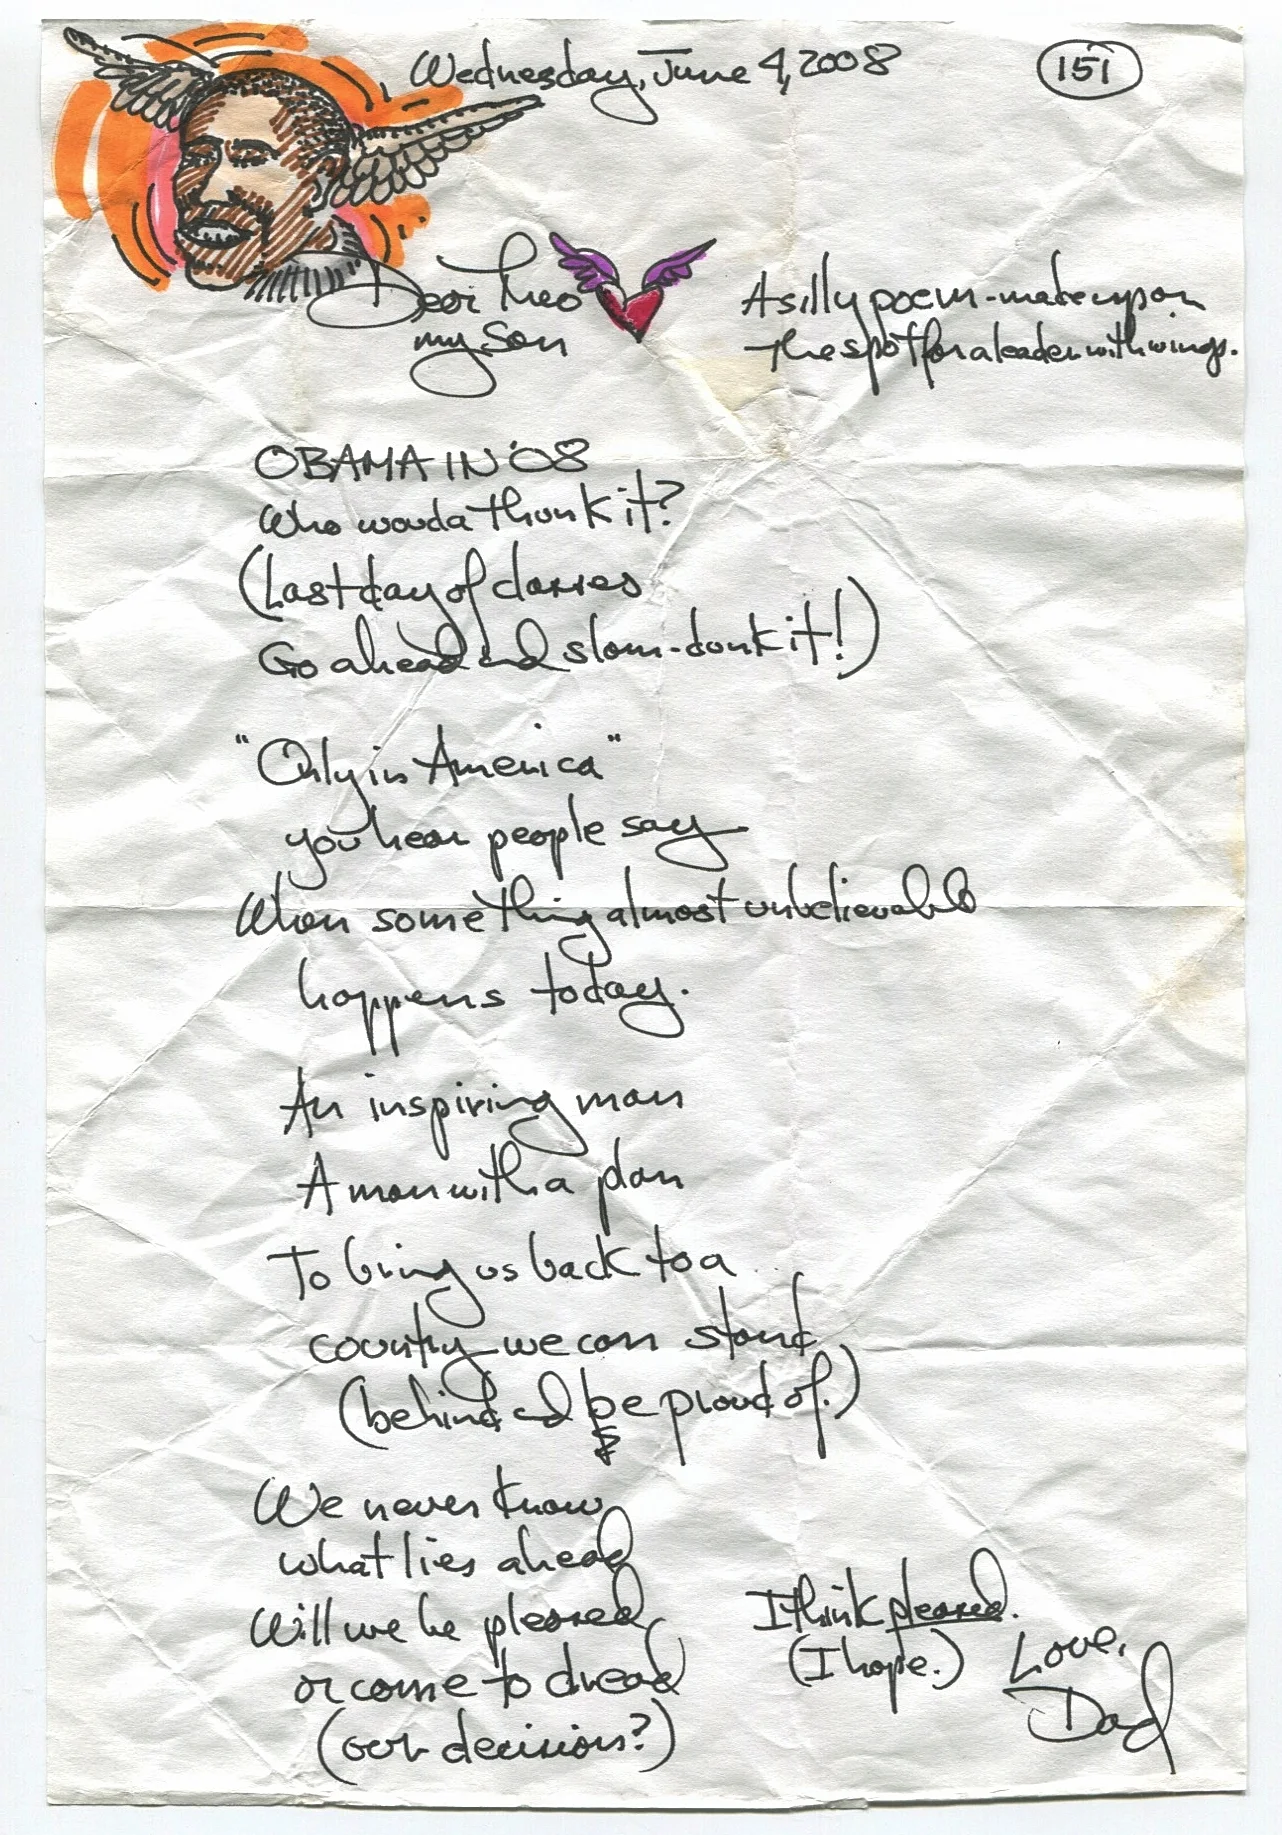 Wednesday, June 4, 2008
151
Dear Theo
my son
A silly poem - made up on
the spot for a leader with wings.
OBAMA IN '08
Who woulda thunk it?
(Last day of classes
Go ahead and slam-dunk it!)
"Only in America"
you hear people say
When something almost unbelievable
happens today.
An inspiring man
A man with a plan
To bring us back to a
country we can stand
(behind and be proud of.)
We never know
what lies ahead
Will we be pleased
or come to dread
(our decision?)
I think pleased.
(I hope.)
Love,
Dad